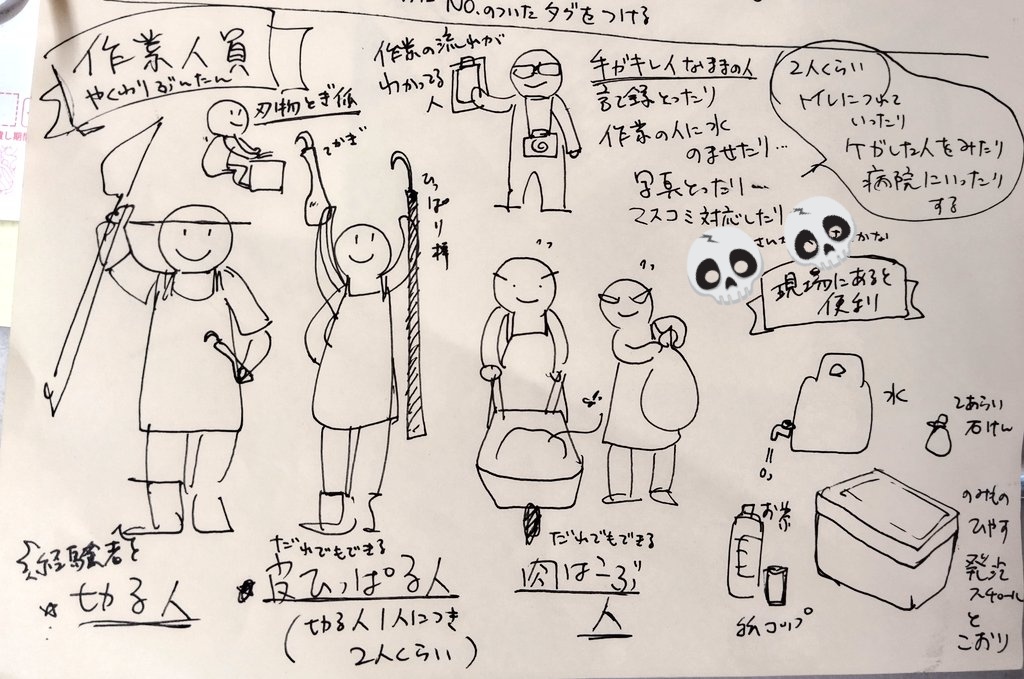 NO.のついたタグをつける
作業人員
やくわりぶんたん
刃物とぎ係
てかぎ
ひっぱり棒
作業の流れが
わかってる
人
手がキレイなままの人
記録とったり
作業の人に水
のませたり…
写真とったり
マスコミ対応したり
2人くらい
トイレにつれて
いったり
ケガした人をみたり
病院にいったり
する
現場にあると
便利
水
てあらい
石けん
お茶
紙コップ
のみもの
ひやす
発泡
スチロール
と
こおり
経験者と
切る人
だれでもできる
皮ひっぱる人
(切る人1人につき
2人くらい)
だれでもできる
肉はこぶ
人